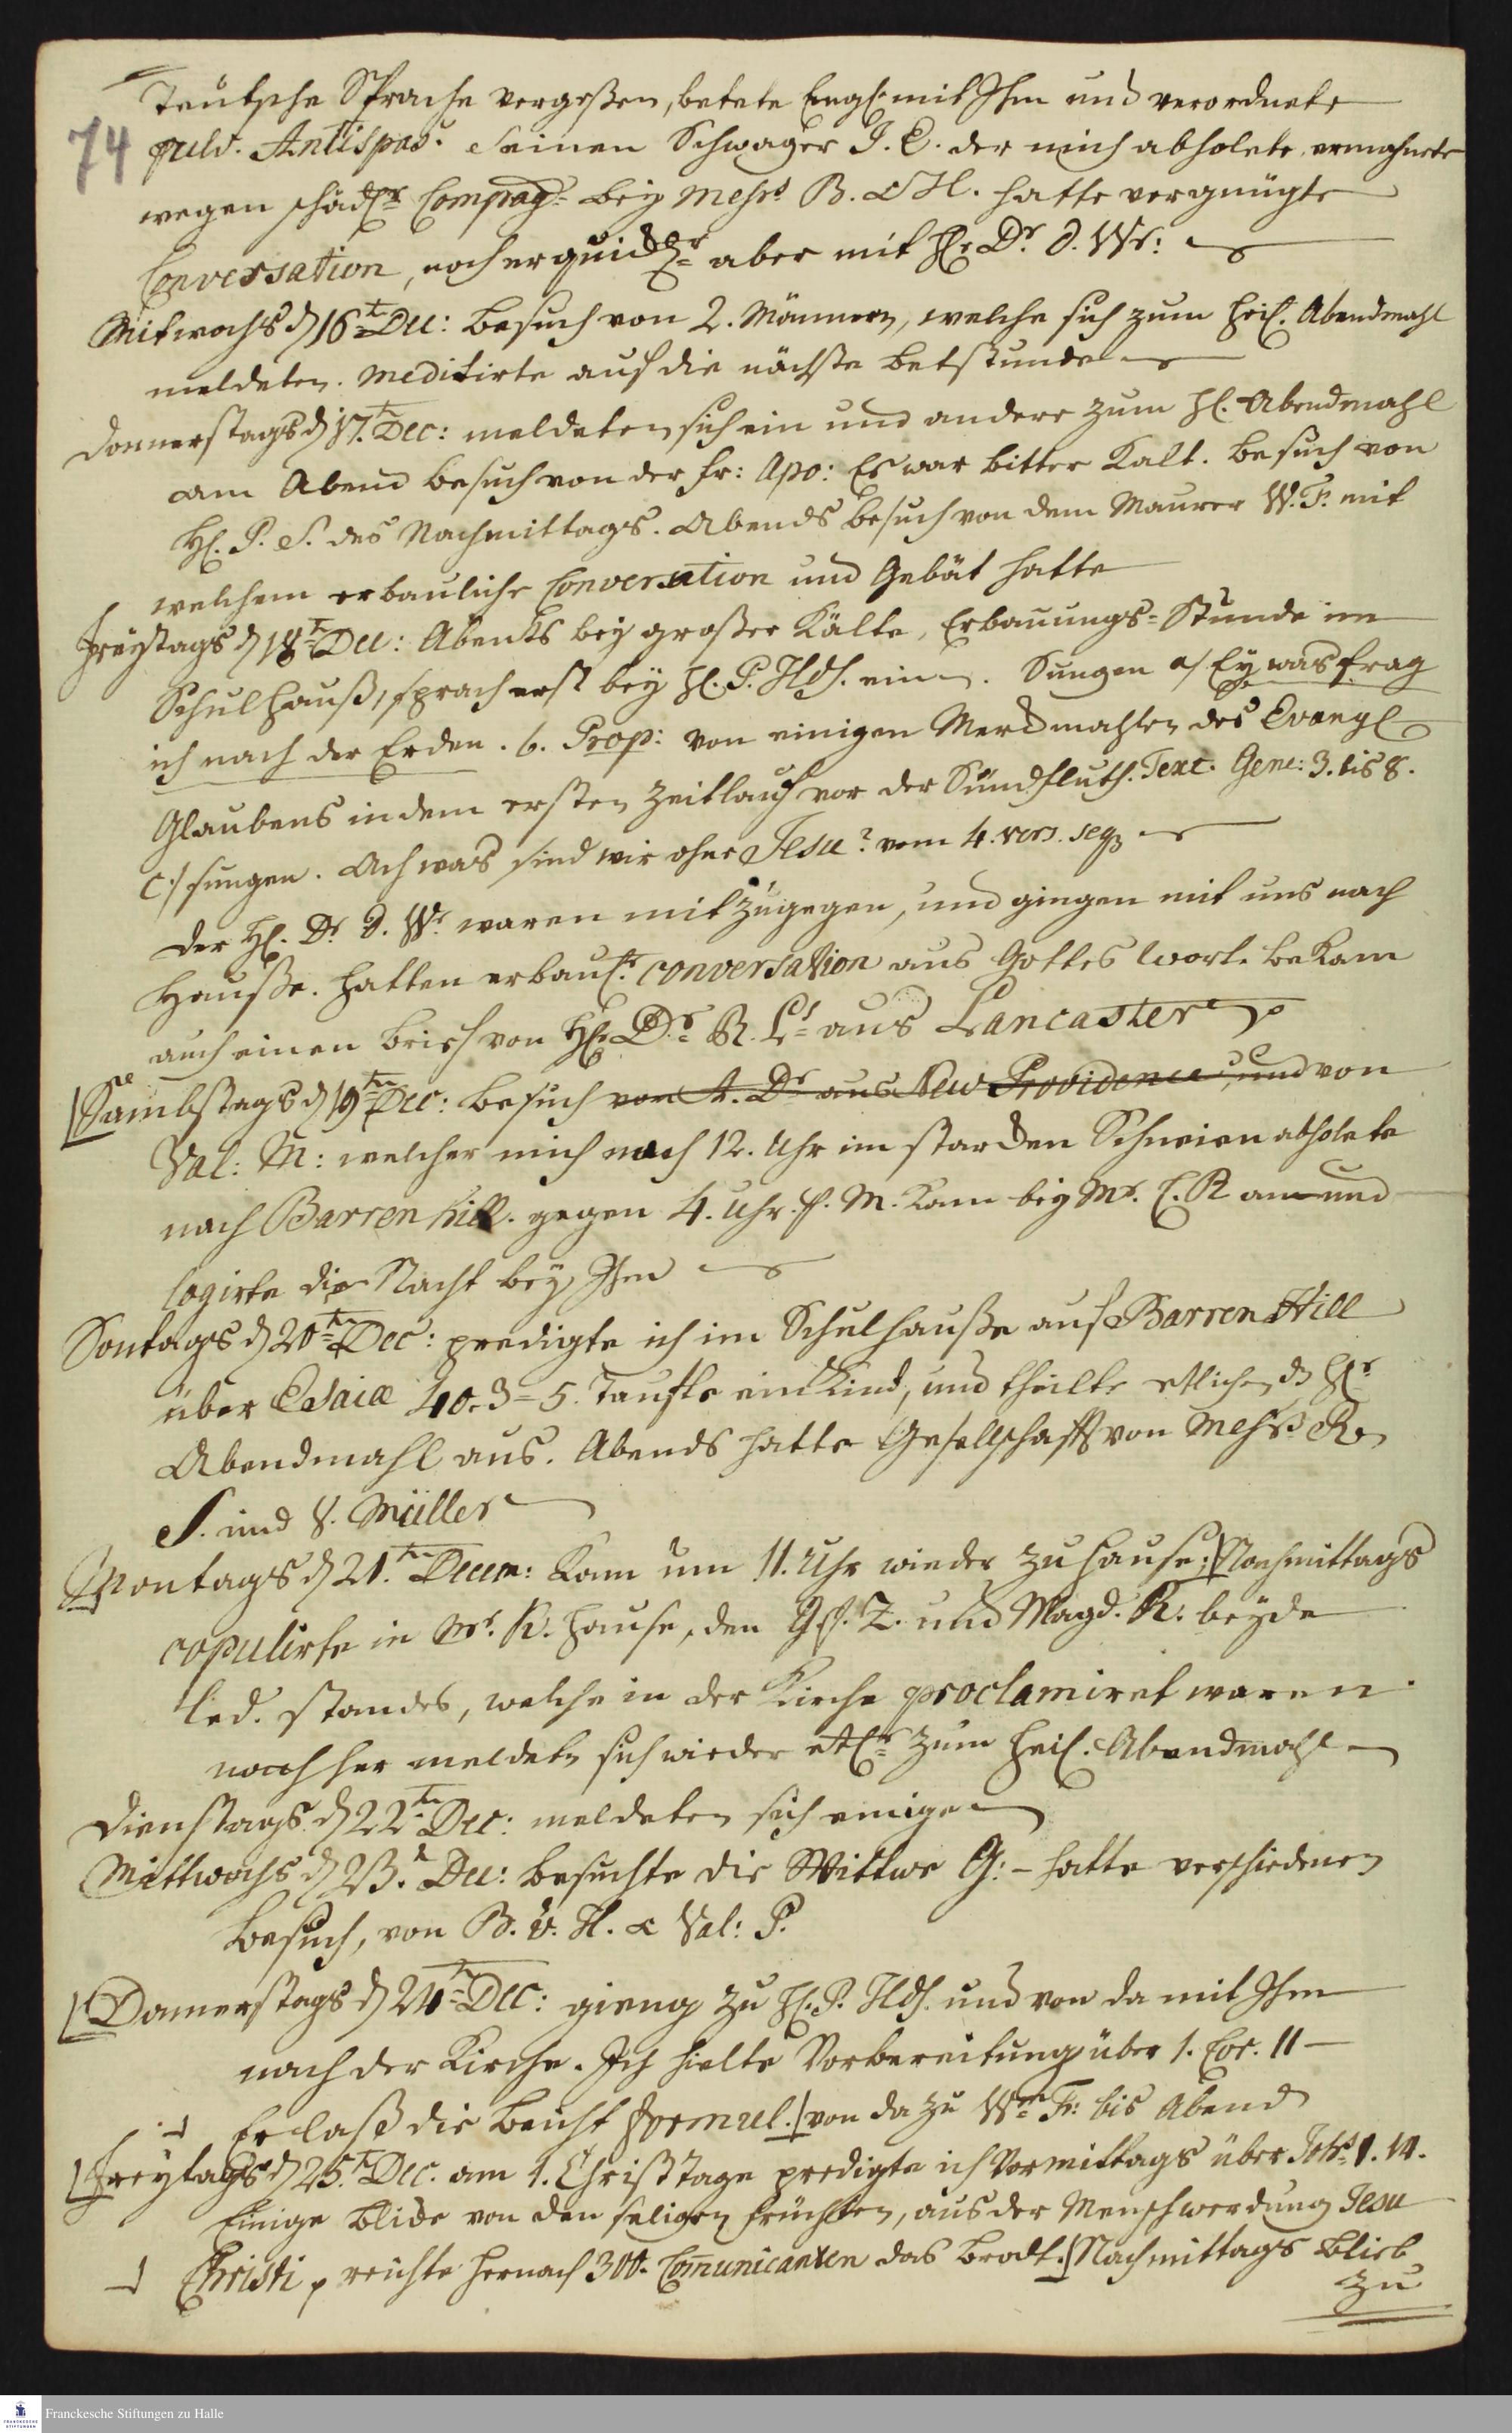 74
Teutsche Sprache vergeßen, betete Engl. mit Ihm und verordnete
pulv. Antispas. Seinen Schwager J. C. der mich abholete, ermahnete
wegen schädl. Compag. bey Messrs B. & H. hatte vergnügte
Conversation, noch erquickl. aber mit H. Dr. d. Wr:
Mitwochs d 16t Dec: Besuch von 2. Männern, welche sich zum heil. Abendmahl
meldeten. meditirte auf die nächste Betstunde
Donnerstags d 17. Dec: meldeten sich ein und andere zum Hl. Abendmahl
am Abend Besuch von der Fr: Apo: Es war bitter Kalt. Besuch von
H. P. S. des Nachmittags. Abends Besuch von dem Maurer W. F. mit
welchem erbauliche Conversation und Gebät hatte
Freytags d 18t Dec: Abends bey großer Kälte, Erbauungs-Stunde im
Schulhauß, sprach erst bey H. P. Hds. ein. Sungen a/ Ey was frag
ich nach der Erden. b. Prop: von einigen Merckmahlen des Evangl
Glaubens in dem ersten Zeitlauf vor der Sündfluth. Text. Gene: 3. bis 8.
c:/ sungen. Ach was sind wir ohne Jesu? vom 4. vers. seq
Der H. Dr. d. Wr. waren mit zugegen, und gingen mit uns nach
Hauße. hatten erbaul. conversation aus Gottes Wort. bekam
auch einen Brief von H. Dr. R. Ls aus Lancaster
Sambstags d 19tn Dec: Besuch von A. Dr aus New Providence, und von
Val: M: welcher mich nach 12. Uhr im starcken Schneien abholete
nach Barren hill. gegen 4. Uhr. P. M. Kam bey Mr. C. R an und
logirte die Nacht bey Ihm
Sontags d 20tn Dec: predigte ich im Schulhauße auf Barren Hill
über Esaiæ 40. 3-5. Taufte ein Kind, und theilte etlichen d Hl
Abendmahl aus. Abends hatte Gesellschafft von Messrs R.
S. und V. Müller
Montags d 21.tn Decem: Kam um 11. Uhr wieder zu hause: Nachmittags
copulirte in Mr. K. hause, den Gf. Z. und Magd. R. beyde
led. standes, welche in der Kirche proclamiret waren.
nach her meldeten sich wieder etl. zum heil. Abendmahl
Dienstags. d 22tn Dec: meldeten sich einige
Mittwochs d 23. Dec: besuchte die Wittwe G: – hatte verschiedenen
Besuch, von B. v. H. & Val: P.
Donnerstags d 24tn Dec: gieng zu H. P. Hds. und von da mit Ihm
nach der Kirche. Ich hielte Vorbereitung über 1. Cor. 11 –
Er laß die Beicht formul. von da zu Wm Fr: bis Abend
Freytags d 25.t Dec. am 1. Christ Tage predigte ich Vormittags über Joh: 1. 14.
Einige Blicke von den seligen früchten, aus der Menschwerdung Jesu
Christi, reichte hernach 300. Com̅unicanten das Brodt. Nachmittags blieb
zu
Franckesche Stiftungen zu Halle